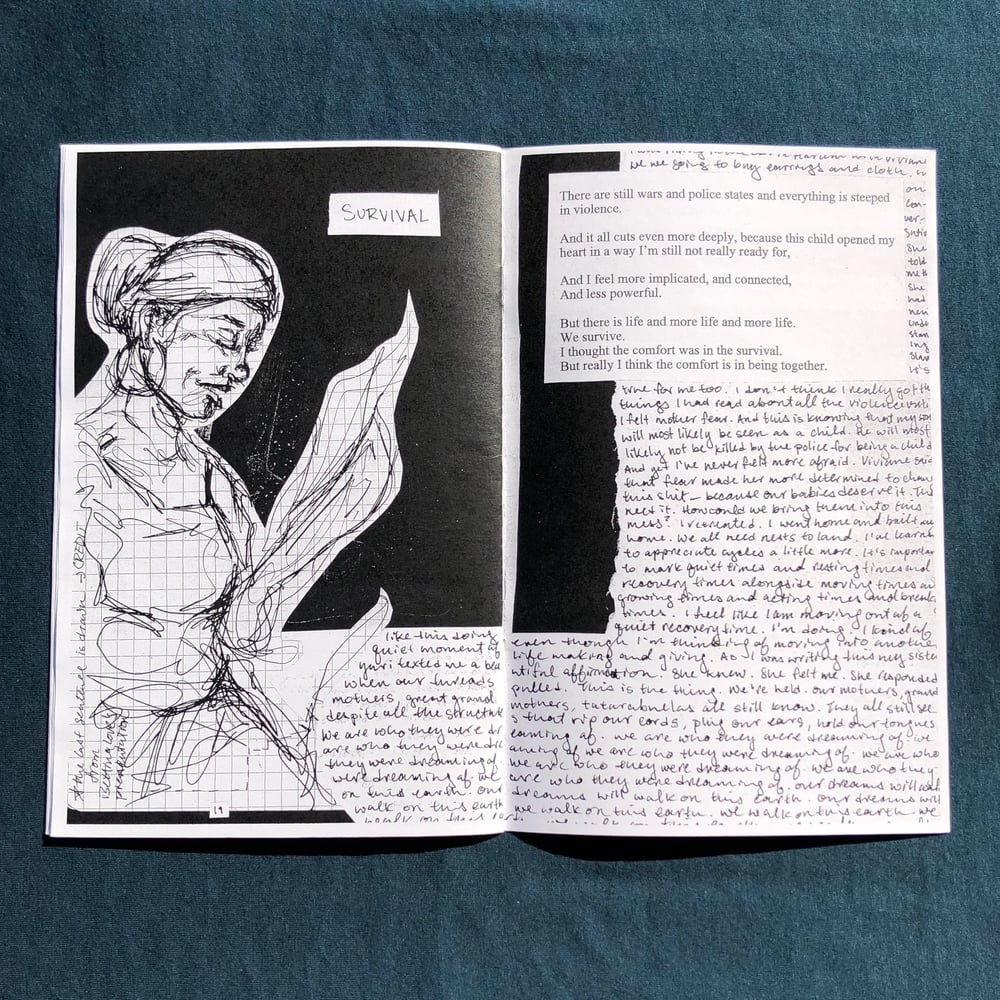 SURVIVAL
* this last sentence is drawn → CREDIT
from
19
like this doing
quiet moment of
yuri texted me a
when our threads
mothers, great grand
despite all the
we are who they were
are who they were
they were dreaming of.
were dreaming of. we
on this earth. our
walk on this earth
we were going to buy earrings and cloth.
There are still wars and police states and everything is steeped
in violence.
And it all cuts even more deeply, because this child opened my
heart in a way I'm still not really ready for,
And I feel more implicated, and connected,
And less powerful.
But there is life and more life and more life.
We survive.
I thought the comfort was in the survival.
But really I think the comfort is in being together.
on
con-
ver-
She
told
me
She
had
It's
true for me too. I don't think I really got
things I had read about all the violence until
I felt mother fear. And this is knowing that my son
will most likely be seen as a child. he will most
likely not be killed by the police for being a child
And yet I've never felt more afraid. Viviane said
that fear made her more determined to change
this shit — because our babies deserve it.
need it. How could we bring them into this
mess? I retreated. I went home and built
home. We all need nests to land. I've learned
to appreciate cycles a little more. It's important
to mark quiet times and resting times and
recovery times alongside moving times
growing times and acting times and break
times. I feel like I am moving out of a
quiet recovery time. I'm doing. I kind of
even though I'm thinking of moving into another
life making and giving. As I was writing this my sister
affirmation. She knew. She felt me. She responded
pulled. This is the thing. We're held. our mothers, grand
mothers, tatarabuelas all still know. They all still see
that rip our cords, plug our ears, hold our tongues
we are who they were dreaming of. we
we are who they were dreaming of. we are who
are who they were dreaming of. we are who they
are who they were dreaming of. our dreams will walk
dreams will walk on this earth. our dreams will
we walk on this earth. we walk on this earth. we